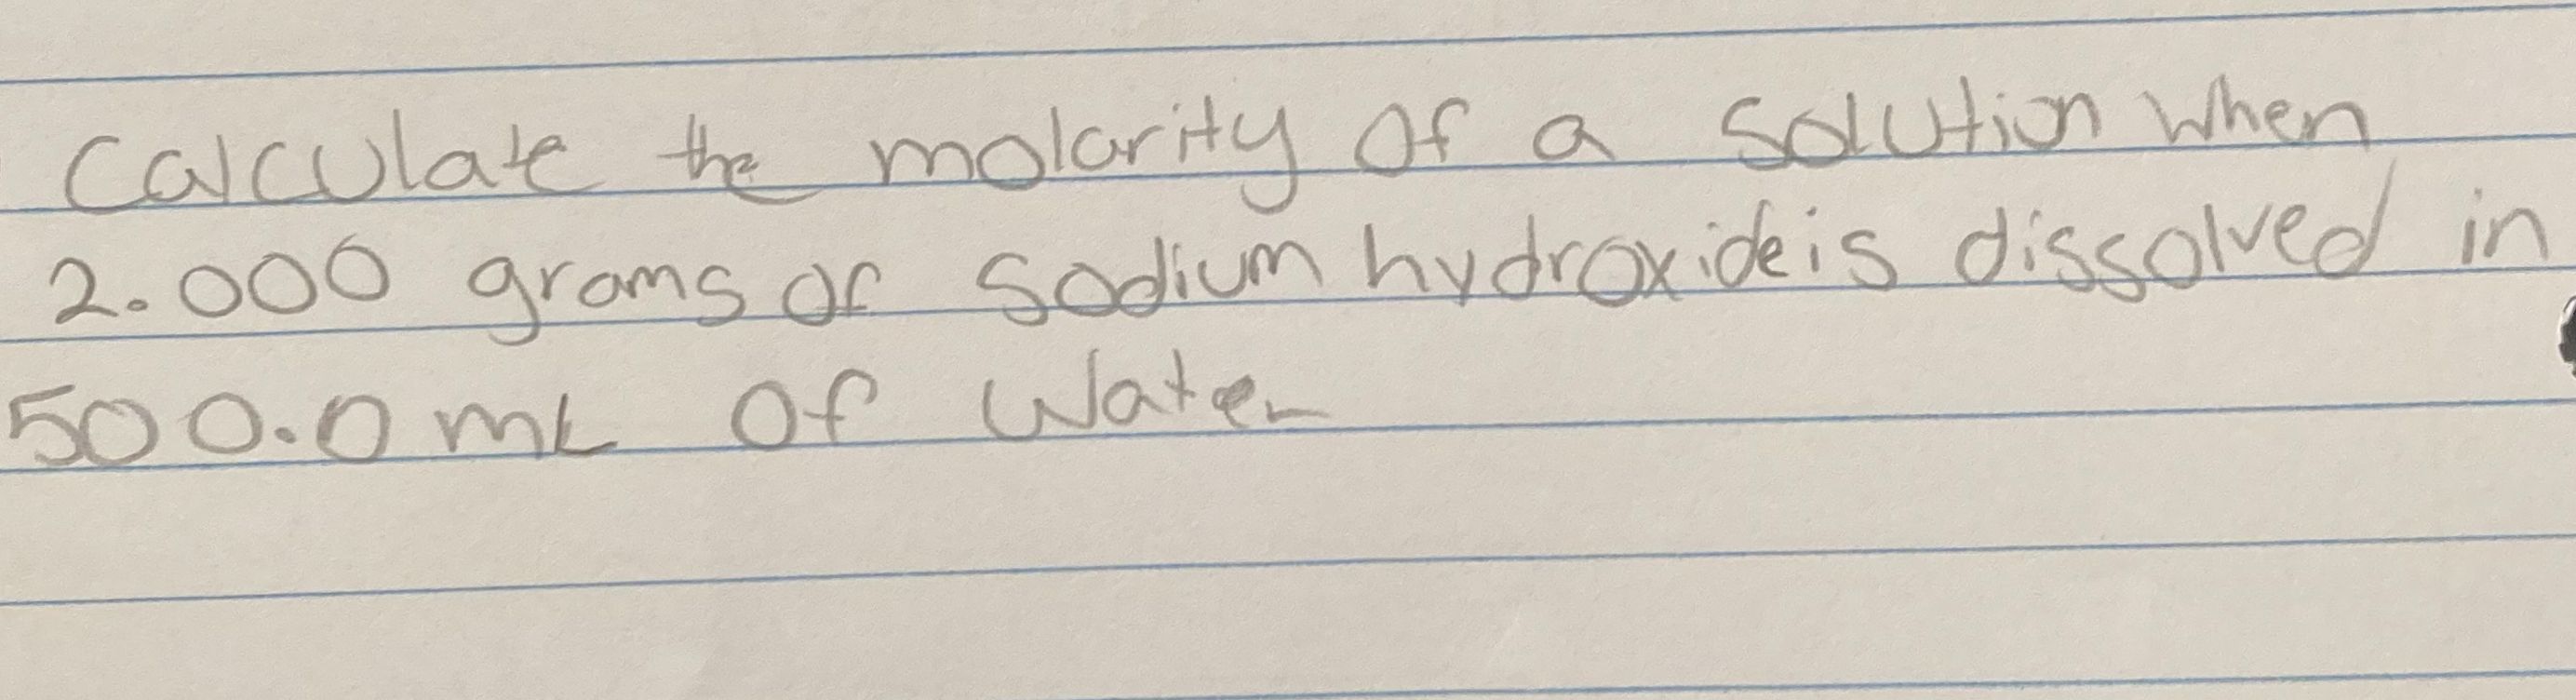 Calculate the molarity of a solution when
2.000 grams of sodium hydroxide is dissolved in
500.0 mL of water